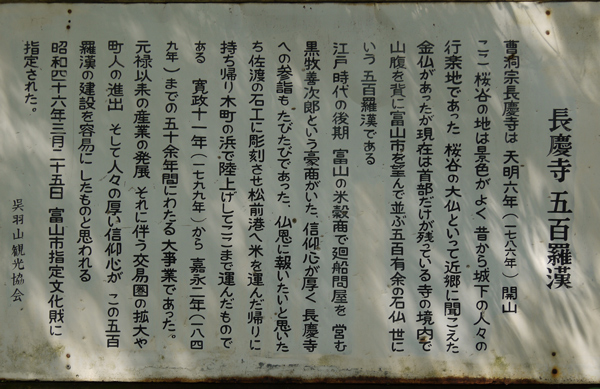 長慶寺 五百羅漢
曹洞宗長慶寺は 天明六年(一七八六年) 開山
ここ 桜谷の地は景色がよく 昔から城下の人々の
行楽地であった 桜谷の大仏といって近郷に聞こえた
金仏があったが現在は首部だけが残っている寺の境内で
山腹を背に富山市を望んで並ぶ五百有余の石仏 世に
いう 五百羅漢である
江戸時代の後期 富山の米穀商で廻船問屋を 営む
黒牧善次郎という豪商がいた。信仰心が厚く 長慶寺
への参詣も たびたびであった、仏恩に報いたいと思いた
ち佐渡の石工に彫刻させ松前港へ米を運んだ帰りに
持ち帰り木町の浜で陸上げしてここまで運んだもので
ある 寛政十一年(一七九九年)から 嘉永二年(一八四
九年)までの五十余年間にわたる 大事業であった。
元禄以来の産業の発展 それに伴う交易圏の拡大や
町人の進出 そして人々の厚い信仰心が この五百
羅漢の建設を容易に したものと思われる
昭和四十六年三月二十五日 富山市指定文化財に
指定された。
呉羽山観光協会